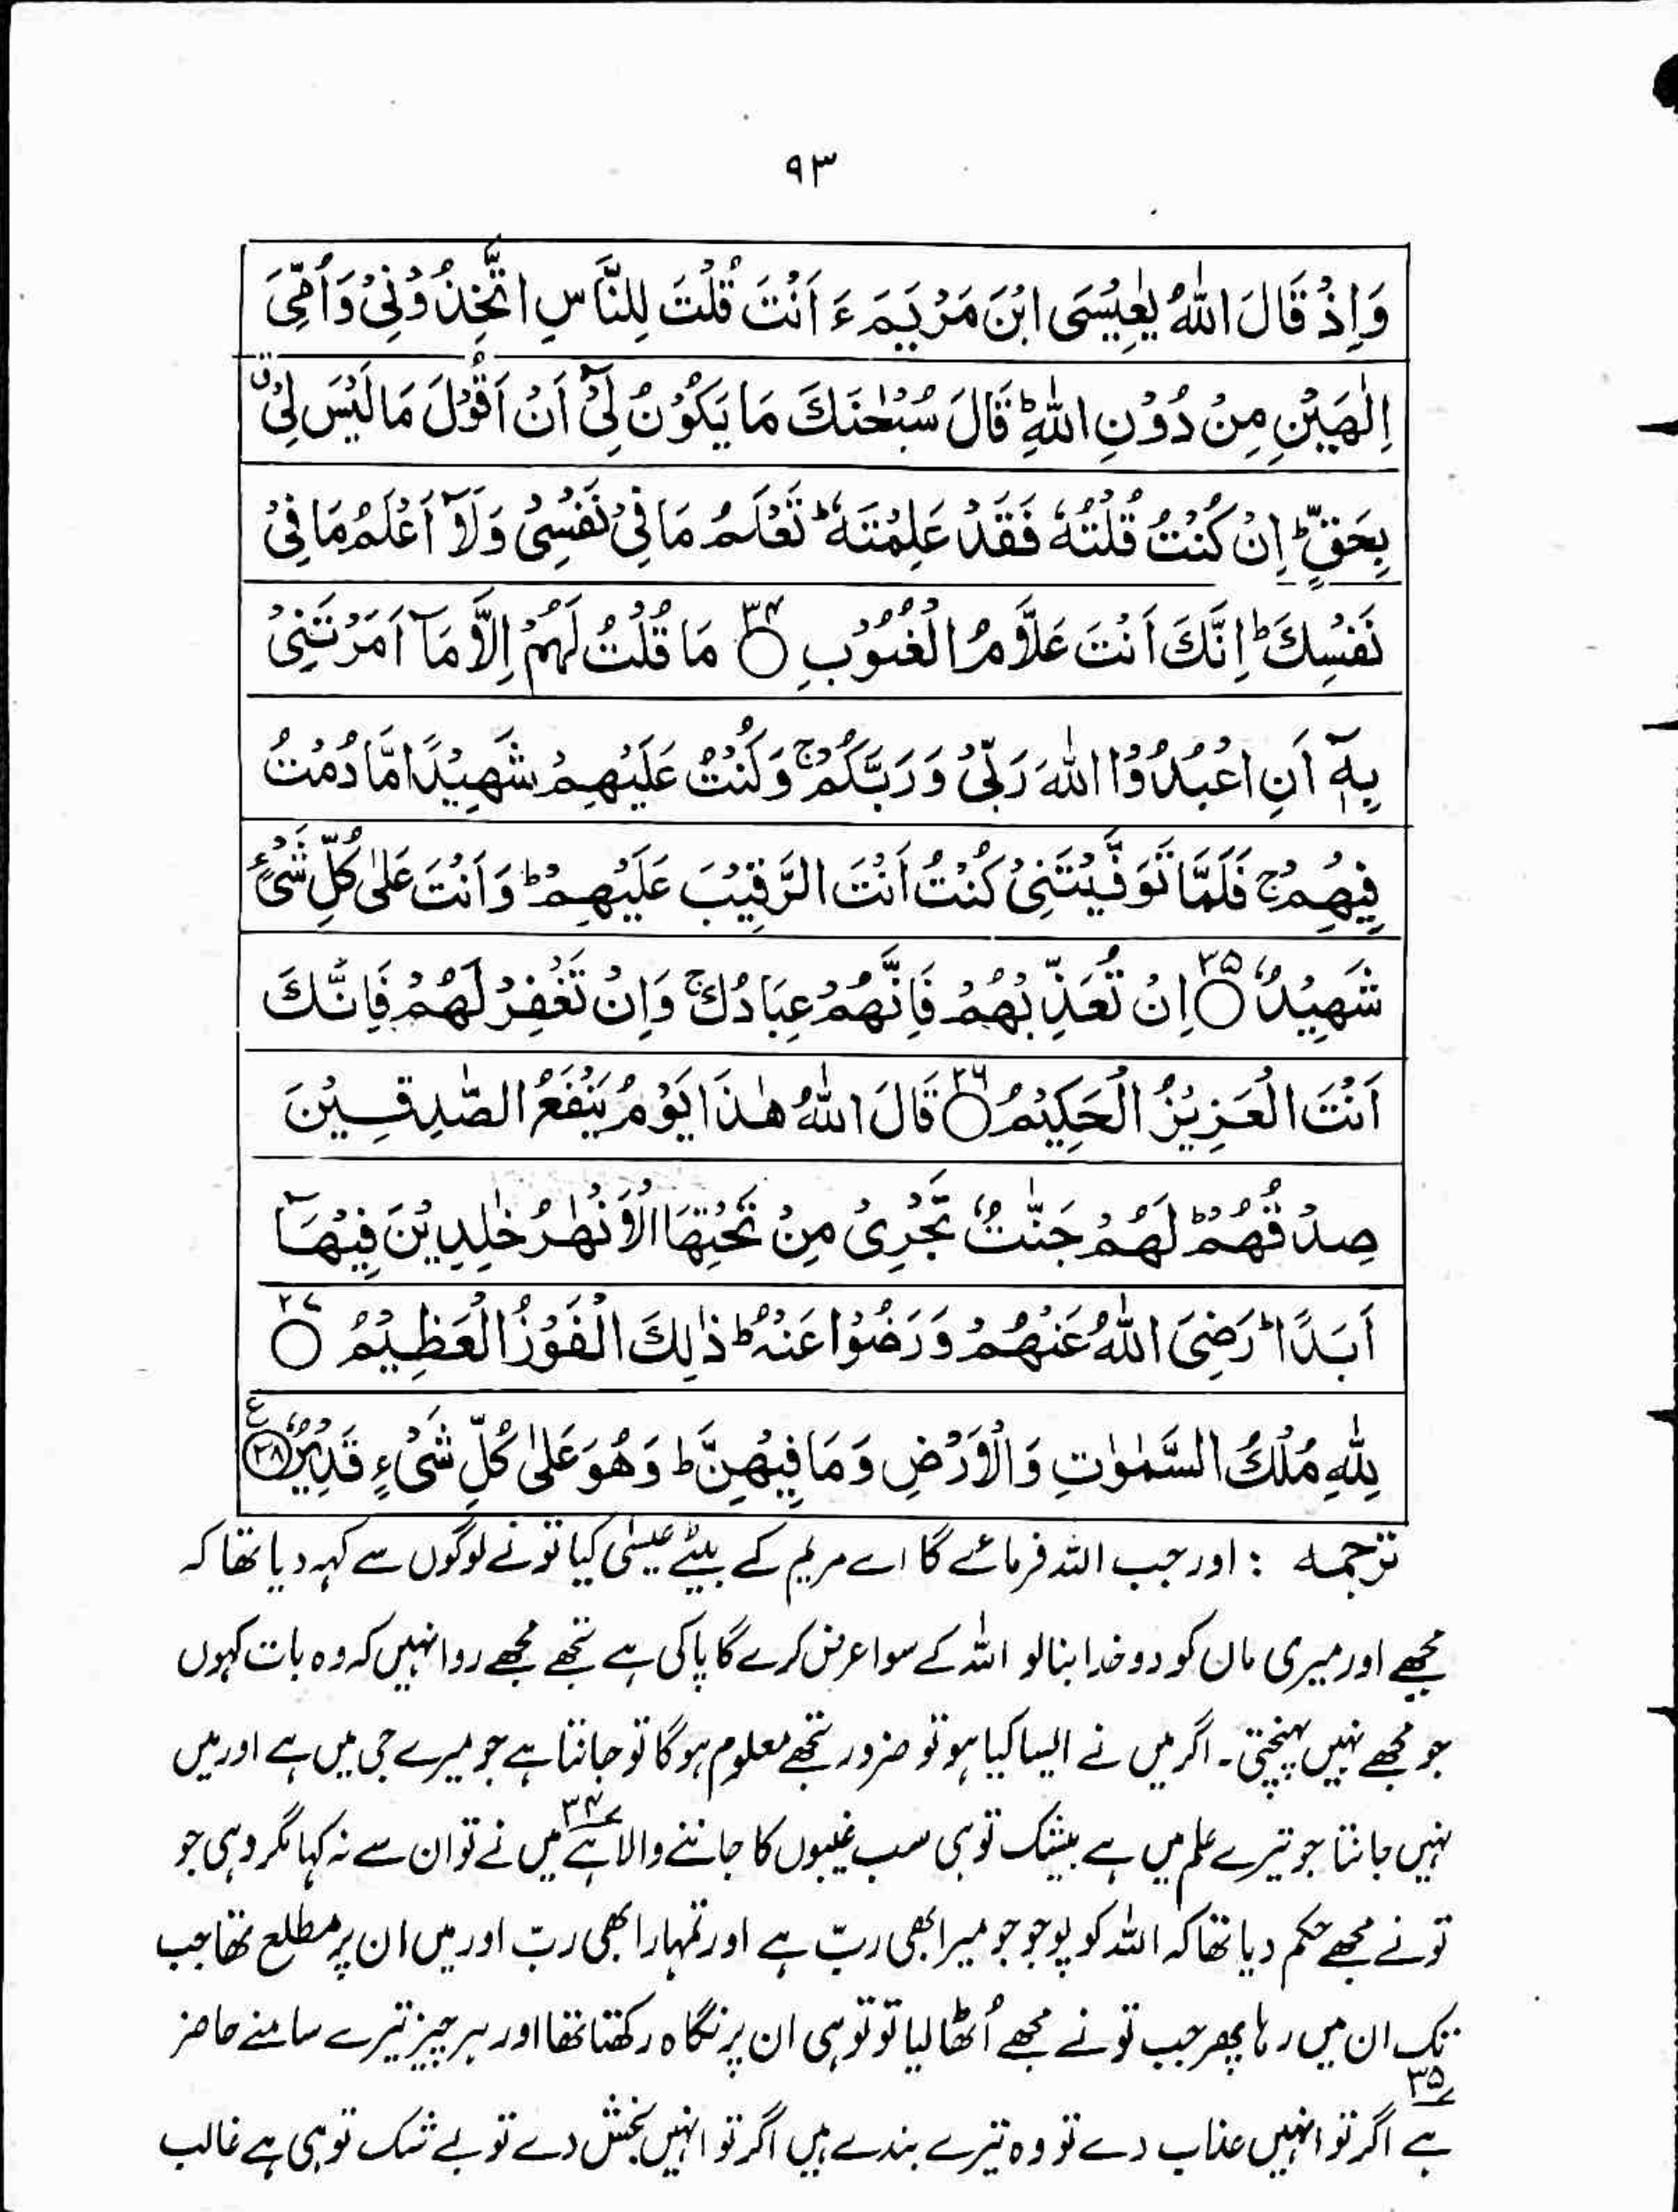 ۹۳
وَاِذْ قَالَ اللّٰهُ یٰعِیْسَی ابْنَ مَرْیَمَ ءَ اَنْتَ قُلْتَ لِلنَّاسِ اتَّخِذُوْنِیْ وَاُمِّیَ
اِلٰهَیْنِ مِنْ دُوْنِ اللّٰهِ ؕ قَالَ سُبْحٰنَكَ مَا یَكُوْنُ لِیْۤ اَنْ اَقُوْلَ مَا لَیْسَ لِیْ ۗ
بِحَقٍّ ؕ اِنْ كُنْتُ قُلْتُهٗ فَقَدْ عَلِمْتَهٗ ؕ تَعْلَمُ مَا فِیْ نَفْسِیْ وَلَاۤ اَعْلَمُ مَا فِیْ
نَفْسِكَ ؕ اِنَّكَ اَنْتَ عَلَّامُ الْغُیُوْبِ ○ ۳۴ مَا قُلْتُ لَهُمْ اِلَّا مَاۤ اَمَرْتَنِیْ
بِهٖۤ اَنِ اعْبُدُوا اللّٰهَ رَبِّیْ وَرَبَّكُمْ ۚ وَكُنْتُ عَلَیْهِمْ شَهِیْدًا مَّا دُمْتُ
فِیْهِمْ ۚ فَلَمَّا تَوَفَّیْتَنِیْ كُنْتُ اَنْتَ الرَّقِیْبَ عَلَیْهِمْ ؕ وَاَنْتَ عَلٰی كُلِّ شَیْءٍ
شَهِیْدٌ ○ ۳۵ اِنْ تُعَذِّبْهُمْ فَاِنَّهُمْ عِبَادُكَ ۚ وَاِنْ تَغْفِرْ لَهُمْ فَاِنَّكَ
اَنْتَ الْعَزِیْزُ الْحَكِیْمُ ○ ۲۶ قَالَ اللّٰهُ هٰذَا یَوْمُ یَنْفَعُ الصّٰدِقِیْنَ
صِدْقُهُمْ ؕ لَهُمْ جَنّٰتٌ تَجْرِیْ مِنْ تَحْتِهَا الْاَنْهٰرُ خٰلِدِیْنَ فِیْهَاۤ
اَبَدًا ؕ رَضِیَ اللّٰهُ عَنْهُمْ وَرَضُوْا عَنْهُ ؕ ذٰلِكَ الْفَوْزُ الْعَظِیْمُ ○ ۲۷
لِلّٰهِ مُلْكُ السَّمٰوٰتِ وَالْاَرْضِ وَمَا فِیْهِنَّ ؕ وَهُوَ عَلٰی كُلِّ شَیْءٍ قَدِیْرٌ ۲۸ ع
ترجمہ : اور جب اللہ فرمائے گا اے مریم کے بیٹے عیسٰی کیا تو نے لوگوں سے کہہ دیا تھا کہ
مجھے اور میری ماں کو دو خدا بنالو اللہ کے سوا عرض کرے گا پاکی ہے تجھے مجھے روا نہیں کہ وہ بات کہوں
جو مجھے نہیں پہنچتی۔ اگر میں نے ایسا کیا ہو تو ضرور تجھے معلوم ہوگا تو جانتا ہے جو میرے جی میں ہے اور میں
نہیں جانتا جو تیرے علم میں ہے بیشک تو ہی سب غیبوں کا جاننے والا ہے ۳۴ میں نے تو ان سے نہ کہا مگر وہی جو
تو نے مجھے حکم دیا تھا کہ اللہ کو پوجو جو میرا بھی ربّ ہے اور تمہارا بھی ربّ اور میں ان پر مطلع تھا جب
تک ان میں رہا پھر جب تو نے مجھے اُٹھا لیا تو تو ہی ان پر نگاہ رکھتا تھا اور ہر چیز تیرے سامنے حاضر
ہے ۳۵ اگر تو انہیں عذاب دے تو وہ تیرے بندے ہیں اگر تو انہیں بخش دے تو بے شک تو ہی ہے غالب